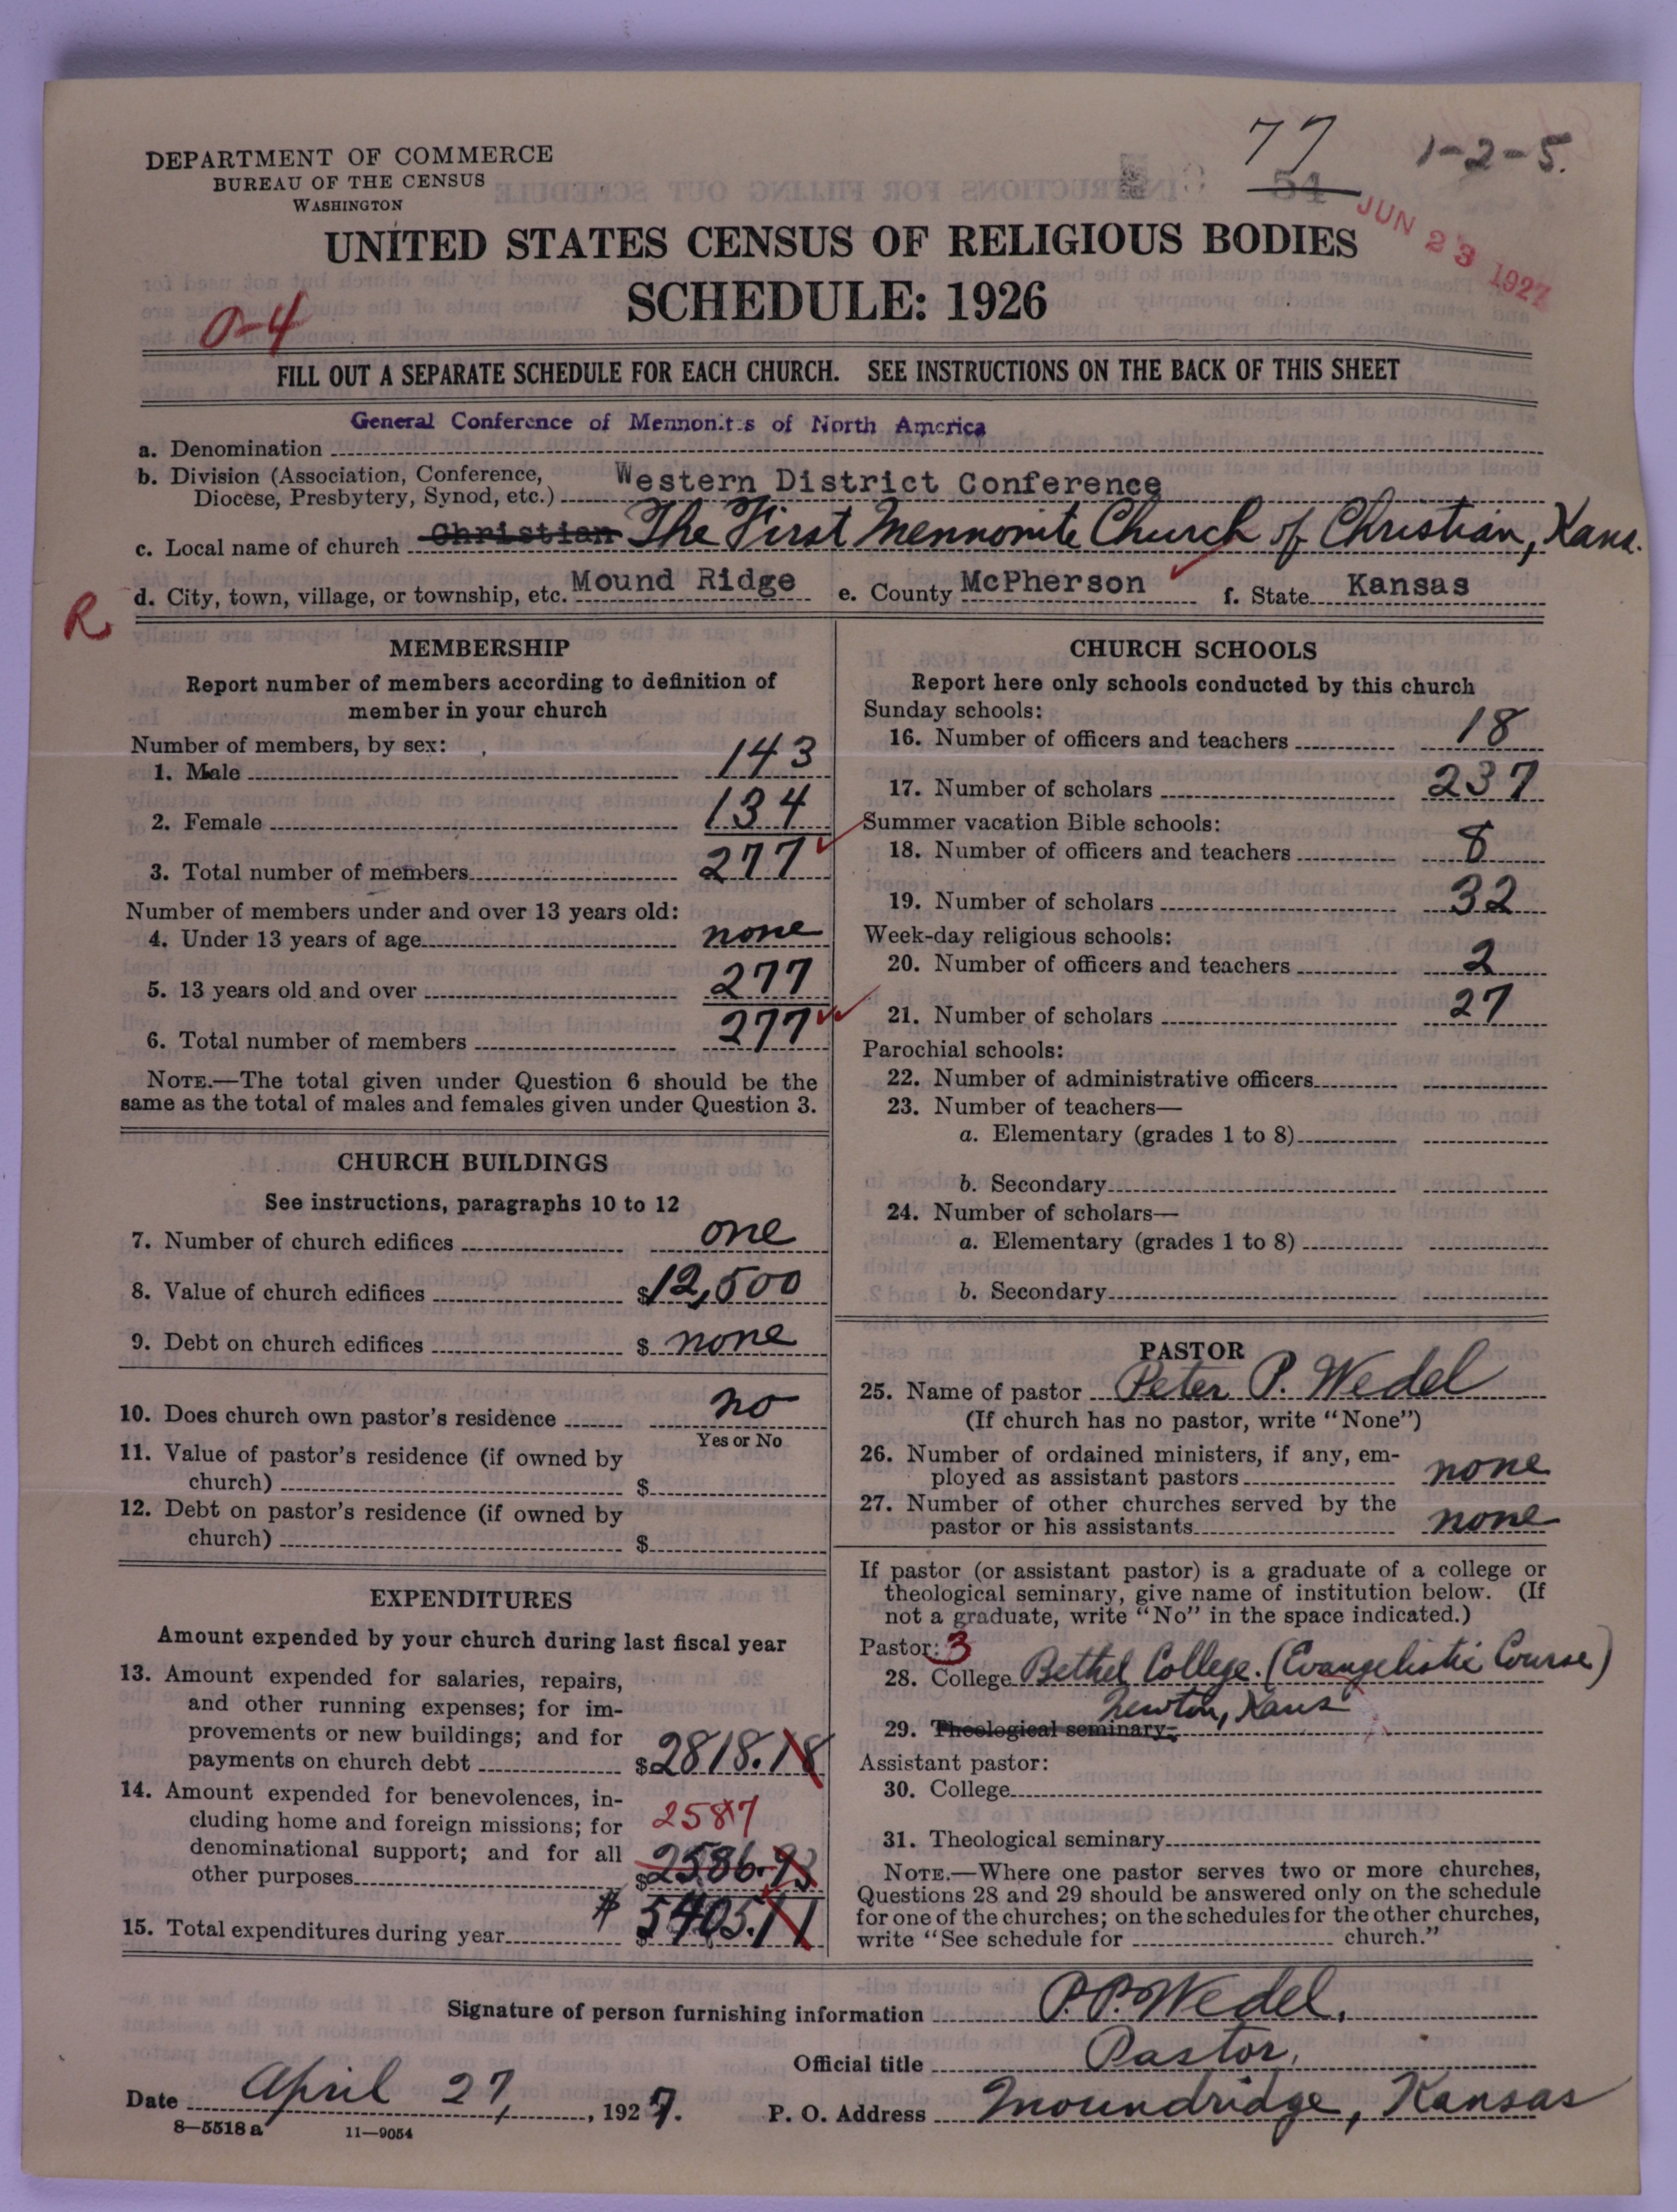 77
1-2-5.
54
JUN 23 1927
DEPARTMENT OF COMMERCE
BUREAU OF THE CENSUS
WASHINGTON
UNITED STATES CENSUS OF RELIGIOUS BODIES
SCHEDULE: 1926
0-4
FILL OUT A SEPARATE SCHEDULE FOR EACH CHURCH. SEE INSTRUCTIONS ON THE BACK OF THIS SHEET
General Conference of Mennonites of North America
a. Denomination
b. Division (Association, Conference,
Diocese, Presbytery, Synod, etc.) Western District Conference
c. Local name of church Christian The First Mennonite Church of Christian, Kans.
d. City, town, village, or township, etc. Mound Ridge e. County McPherson f. State Kansas
R
MEMBERSHIP
Report number of members according to definition of
member in your church
Number of members, by sex:
1. Male 143
2. Female 134
3. Total number of members 277
Number of members under and over 13 years old:
4. Under 13 years of age none
5. 13 years old and over 277
6. Total number of members 277
NOTE.—The total given under Question 6 should be the
same as the total of males and females given under Question 3.
CHURCH BUILDINGS
See instructions, paragraphs 10 to 12
7. Number of church edifices one
8. Value of church edifices $12,500
9. Debt on church edifices $ none
10. Does church own pastor's residence no
Yes or No
11. Value of pastor's residence (if owned by
church) $
12. Debt on pastor's residence (if owned by
church) $
EXPENDITURES
Amount expended by your church during last fiscal year
13. Amount expended for salaries, repairs,
and other running expenses; for im-
provements or new buildings; and for
payments on church debt $2818.18
14. Amount expended for benevolences, in-
cluding home and foreign missions; for 2587
denominational support; and for all
other purposes $2586.93
15. Total expenditures during year $ 5405.11
CHURCH SCHOOLS
Report here only schools conducted by this church
Sunday schools:
16. Number of officers and teachers 18
17. Number of scholars 237
Summer vacation Bible schools:
18. Number of officers and teachers 8
19. Number of scholars 32
Week-day religious schools:
20. Number of officers and teachers 2
21. Number of scholars 27
Parochial schools:
22. Number of administrative officers
23. Number of teachers—
a. Elementary (grades 1 to 8)
b. Secondary
24. Number of scholars—
a. Elementary (grades 1 to 8)
b. Secondary
PASTOR
25. Name of pastor Peter P. Wedel
(If church has no pastor, write "None")
26. Number of ordained ministers, if any, em-
ployed as assistant pastors none
27. Number of other churches served by the
pastor or his assistants none
If pastor (or assistant pastor) is a graduate of a college or
theological seminary, give name of institution below. (If
not a graduate, write "No" in the space indicated.)
Pastor: 3
28. College Bethel College. (Evangelistic Course)
Newton, Kans
29. Theological seminary
Assistant pastor:
30. College
31. Theological seminary
NOTE.—Where one pastor serves two or more churches,
Questions 28 and 29 should be answered only on the schedule
for one of the churches; on the schedules for the other churches,
write "See schedule for church."
Signature of person furnishing information P.P. Wedel,
Official title Pastor,
Date April 27, 1927. P. O. Address Moundridge, Kansas
8—5518a 11—9054